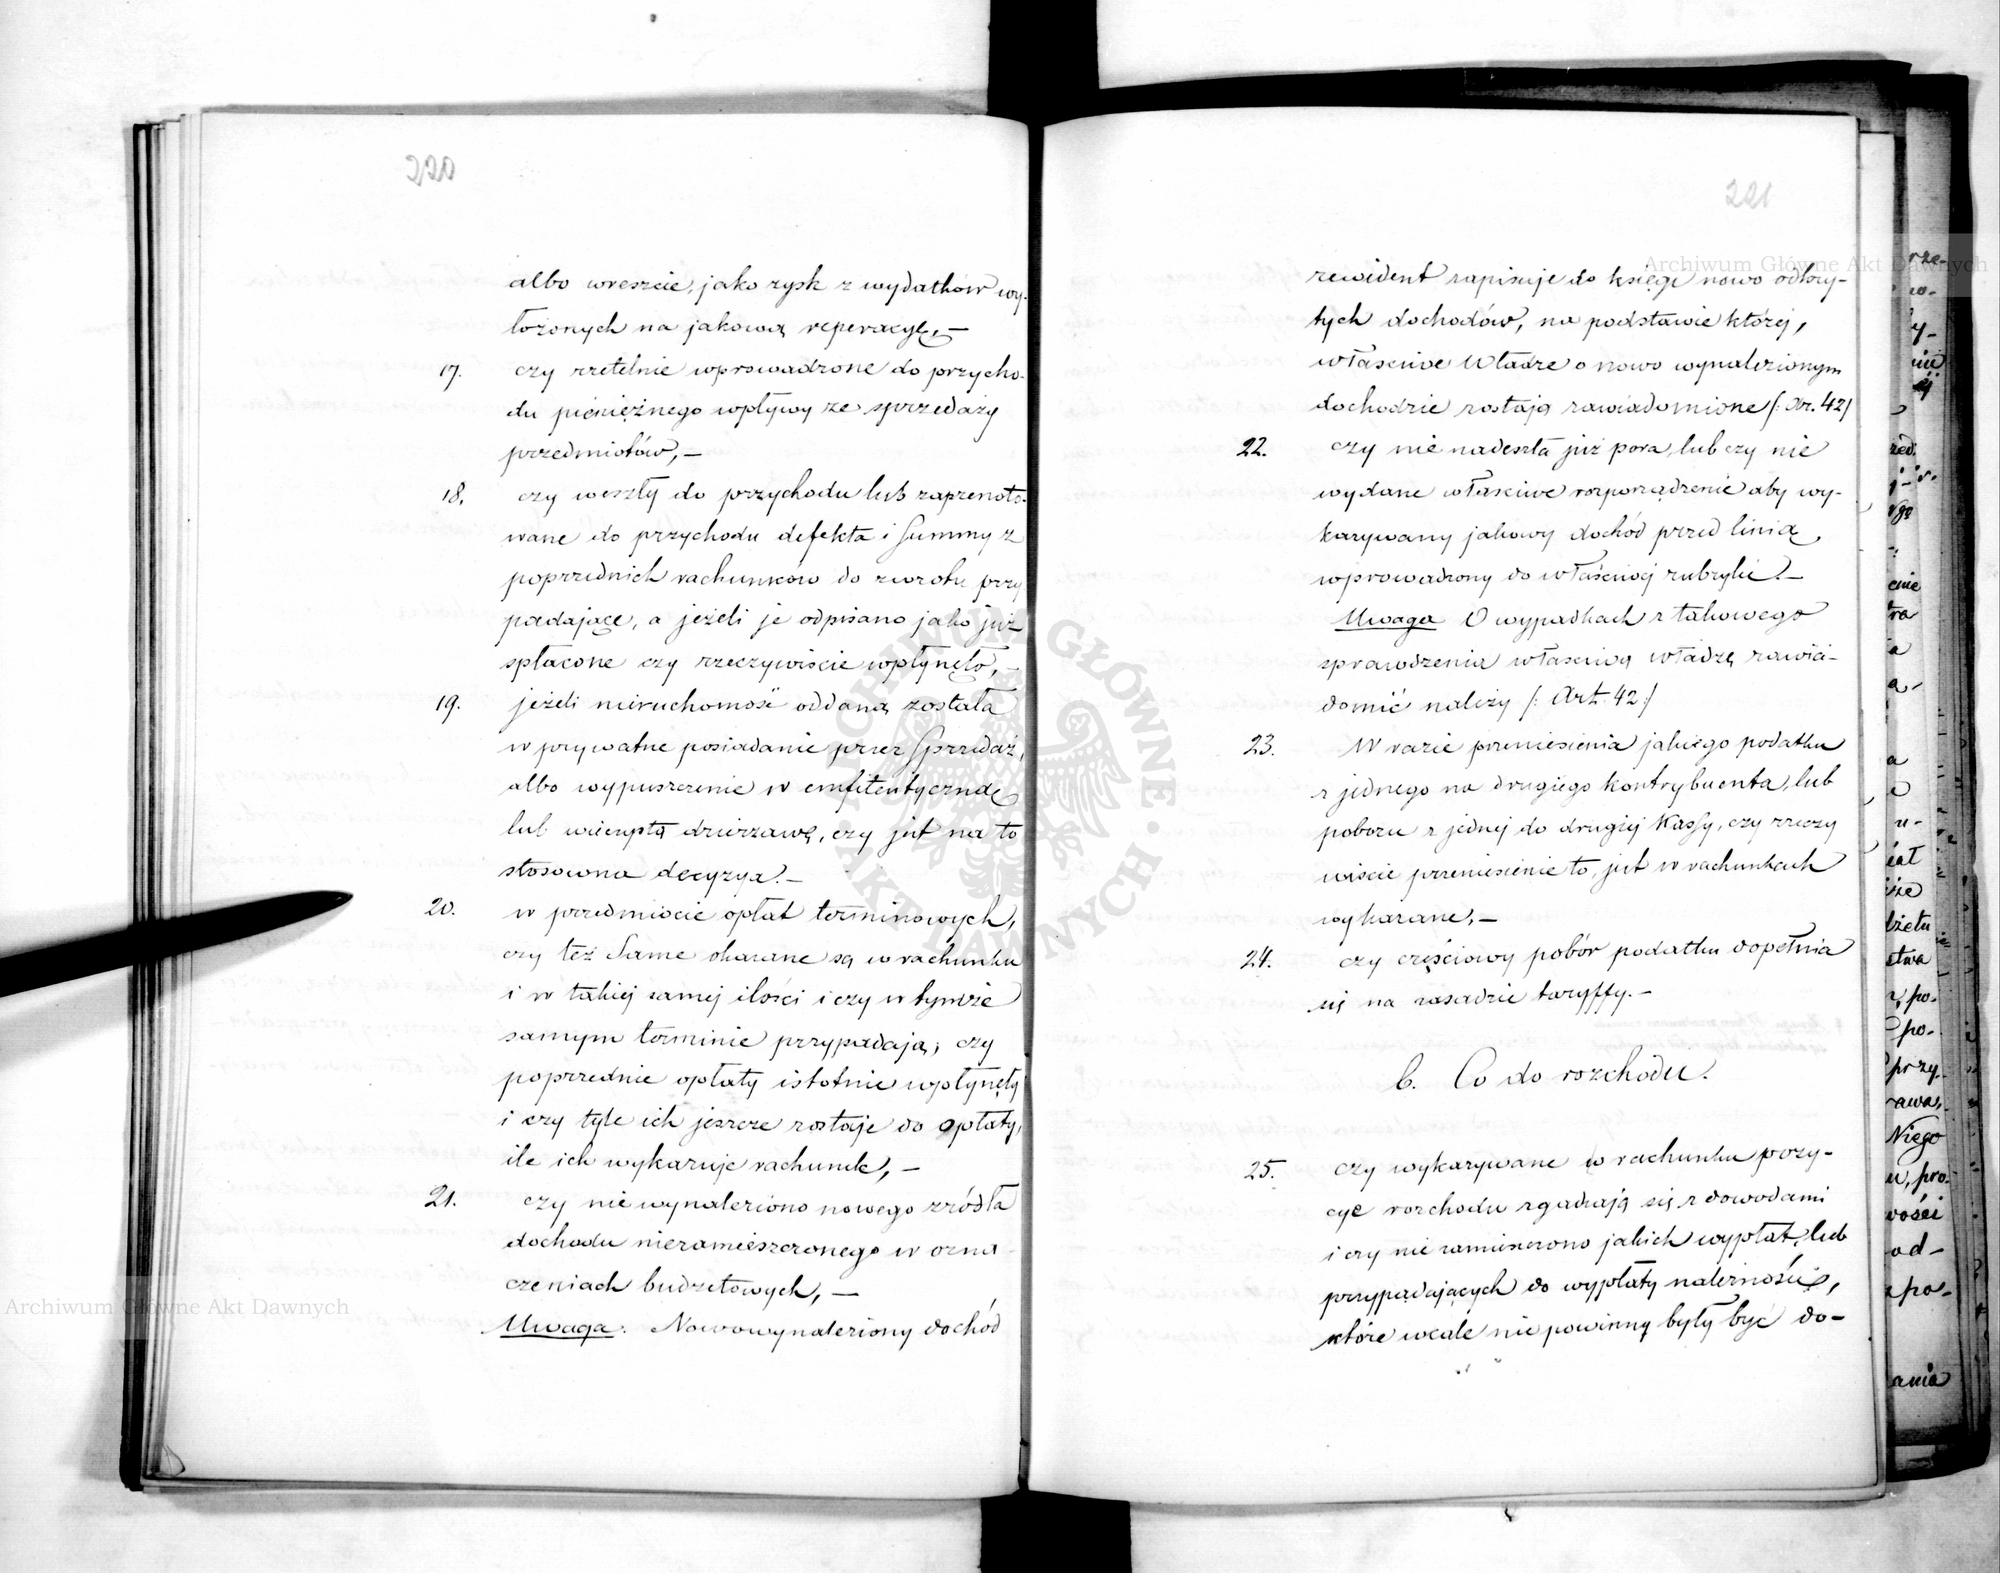 220
albo wreszcie, jako zysk z wydatków wy-
łożonych na jakową reperacyę, —
17. czy rzetelnie wprowadzone do przycho-
du pieniężnego wpływy ze sprzedaży
przedmiotów, —
18. czy weszły do przychodu lub zaprenoto-
wane do przychodu defekta i Summy z
poprzednich rachunków do zwrotu przy
padające, a jeżeli je odpisano jako już
spłacone czy rzeczywiście wpłynęło, —
19. jeżeli nieruchomość oddaną została
w prywatne posiadanie przez Sprzedaż,
albo wypuszczenie w emfiteutyczną
lub wieczystą dzierżawę, czy jest na to
stosowna decyzya. —
20. w przedmiocie opłat terminowych,
czy też Same okazane są w rachunku
i w takiej samej ilości i czy w tymże
samym terminie przypadają; czy
poprzednie opłaty istotnie wpłynęły
i czy tyle ich jeszcze zostaje do opłaty,
ile ich wykazuje rachunek, —
21. czy nie wynaleziono nowego zródła
dochodu niezamieszczonego w ozna
czeniach budżetowych, —
Uwaga. Nowowynaleziony dochód
221
rewident zapisuje do księgi nowo odkry-
tych dochodów, na podstawie której,
właściwe Władze o nowo wynalezionym
dochodzie zostają zawiadomione /: Ar. 42/
22. czy nie nadeszła już pora, lub czy nie
wydane właściwe rozporządzenie aby wy-
kazywany jakowy dochód przed linią,
wprowadzony do właściwej rubryki. —
Uwaga O wypadkach z takowego
sprawdzenia właściwą władzę zawia-
domić należy /: Art. 42 :/
23. W razie przeniesienia jakiego podatku
z jednego na drugiego kontrybuenta, lub
poboru z jednej do drugiej Kassy, czy rzeczy
wiście przeniesienie to, jest w rachunkach
wykazane, —
24. czy częściowy pobór podatku dopełnia
się na zasadzie taryffy. —
b. Co do rozchodu.
25. czy wykazywane w rachunku pozy-
cye rozchodu zgadzają się z dowodami
i czy nie zamieszczono jakich wypłat, lub
przypadających do wypłaty należności,
które wcale nie powinny były być do-
Archiwum Główne Akt Dawnych
Archiwum Główne Akt Dawnych
ARCHIWUM GŁÓWNE • AKT DAWNYCH •